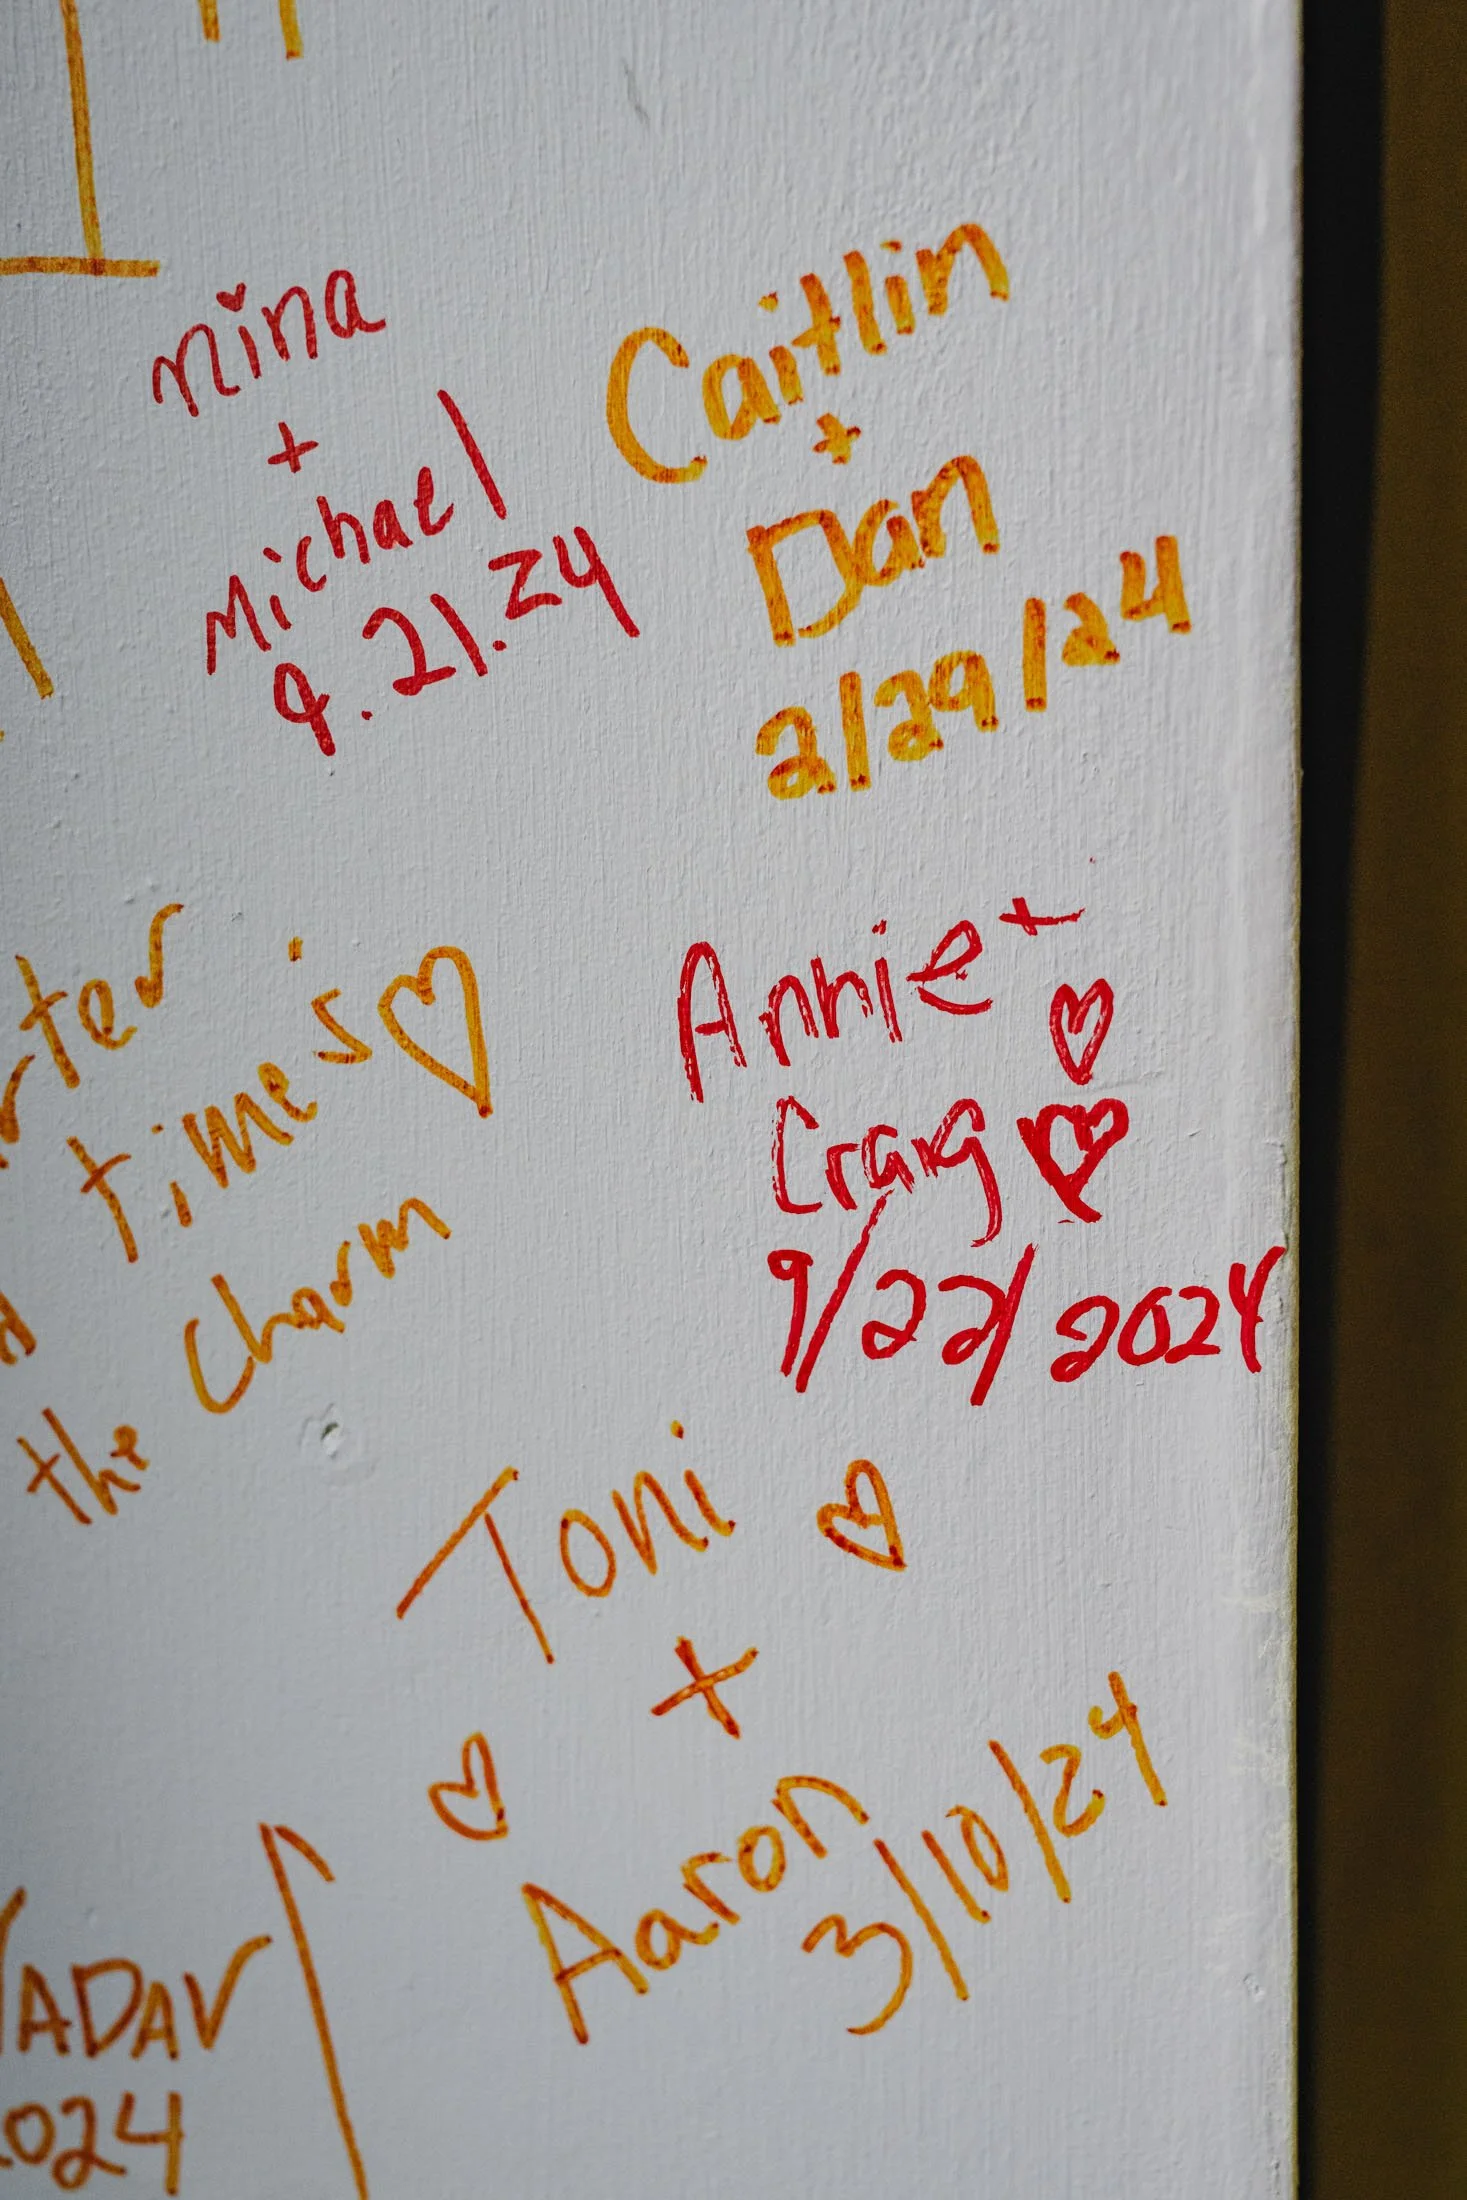 nina
+
Michael
9.21.24
Caitlin
+
Dan
2/29/24
times
the charm
Annie +
Craig
9/22/2024
Toni
+
Aaron
3/10/24
YADAV
2024